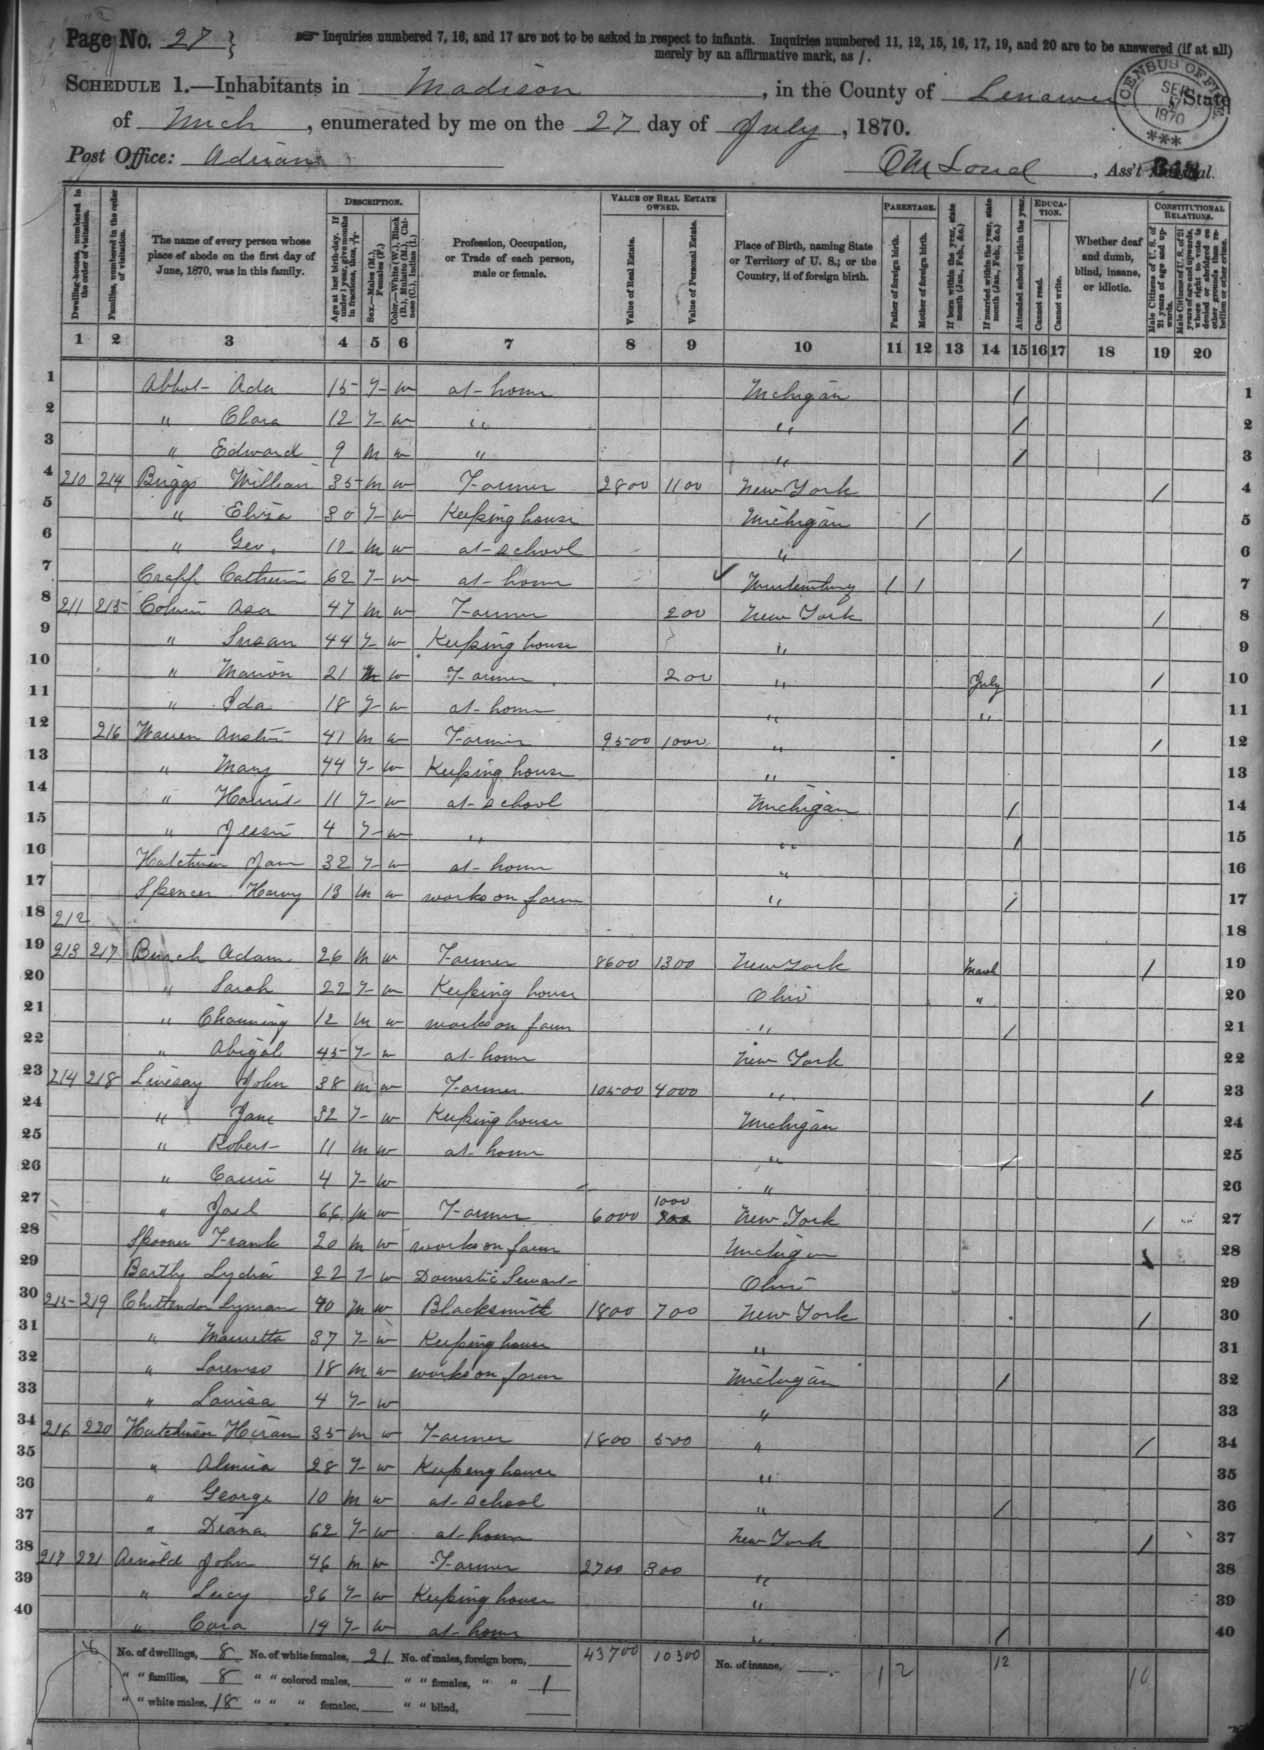 Page No. 27
Inquiries numbered 7, 16, and 17 are not to be asked in respect to infants. Inquiries numbered 11, 12, 15, 16, 17, 19, and 20 are to be answered (if at all)
merely by an affirmative mark, as /.
SCHEDULE 1.—Inhabitants in Madison, in the County of Lenawee, State
of Mich, enumerated by me on the 27 day of July, 1870.
Post Office: Adrian
Ass't Marshal.
CENSUS OFFICE SEP 1870
Dwelling-houses, numbered in the order of visitation.
Families, numbered in the order of visitation.
The name of every person whose place of abode on the first day of June, 1870, was in this family.
DESCRIPTION.
Age at last birth-day. If under 1 year, give months in fractions, thus, 3/12
Sex.—Males (M.), Females (F.)
Color.—White (W.), Black (B.), Mulatto (M.), Chinese (C.), Indian (I.)
Profession, Occupation, or Trade of each person, male or female.
VALUE OF REAL ESTATE OWNED.
Value of Real Estate.
Value of Personal Estate.
Place of Birth, naming State or Territory of U. S.; or the Country, if of foreign birth.
PARENTAGE.
Father of foreign birth.
Mother of foreign birth.
If born within the year, state month (Jan., Feb., &c.)
If married within the year, state month (Jan., Feb., &c.)
EDUCATION.
Attended school within the year.
Cannot read.
Cannot write.
Whether deaf and dumb, blind, insane, or idiotic.
CONSTITUTIONAL RELATIONS.
Male Citizens of U. S. of 21 years of age and upwards.
Male Citizens of U. S. of 21 years of age and upwards, whose right to vote is denied or abridged on other grounds than rebellion or other crime.
1 2 3 4 5 6 7 8 9 10 11 12 13 14 15 16 17 18 19 20
1 Abbot Ada 15 F w at home Michigan / 1
2 " Clara 12 F w " " / 2
3 " Edward 9 M w " " / 3
4 210 214 Briggs William 35 M w Farmer 2800 1100 New York / 4
5 " Eliza 30 F w Keeping house Michigan / 5
6 " Geo. 12 M w at school " / 6
7 62 F w at home / / 7
8 211 215 Asa 47 M w Farmer 200 New York / 8
9 " Susan 44 F w Keeping house " 9
10 " Marion 21 M w Farmer 200 " July / 10
11 " Ida 18 F w at home " " 11
12 216 Warren Austin 41 M w Farmer 9500 1000 " / 12
13 " Mary 44 F w Keeping house " 13
14 " 11 F w at school Michigan / 14
15 " Jessie 4 F w " " / 15
16 32 F w at home " 16
17 Spencer Harvy 13 M w works on farm " / 17
18 212 18
19 213 217 Adam 26 M w Farmer 8600 1300 New York March / 19
20 " Sarah 22 F w Keeping house Ohio " 20
21 " Channing 12 M w works on farm " / 21
22 " Abigal 45 F w at home New York 22
23 214 218 Livesay John 38 M w Farmer 10500 4000 " / 23
24 " Jane 32 F w Keeping house Michigan 24
25 " Robert 11 M w at home " / 25
26 " Carrie 4 F w " 26
27 " Joel 66 M w Farmer 6000 1000 New York / 27
28 Spooner Frank 20 M w works on farm Michigan 28
29 Lydia 22 F w Domestic Servant Ohio 29
30 215 219 Chittendon Lyman 40 M w Blacksmith 1800 700 New York / 30
31 " Marietta 37 F w Keeping house " 31
32 " Lorenzo 18 M w works on farm Michigan / 32
33 " Louisa 4 F w " 33
34 216 220 Hiram 35 M w Farmer 1800 500 " / 34
35 " Almira 28 F w Keeping house " 35
36 " George 10 M w at school " / 36
37 " Diana 62 F w at home New York 37
38 217 221 Arnold John 46 M w Farmer 2700 300 " / 38
39 " Lucy 36 F w Keeping house " 39
40 " Cora 14 F w at home " / 40
No. of dwellings, 8 No. of white females, 21 No. of males, foreign born, 43700 10300 No. of insane, 1 2 12 10
" " families, 8 " " colored males, " " females, " " 1
" " white males, 18 " " " females, " " blind,